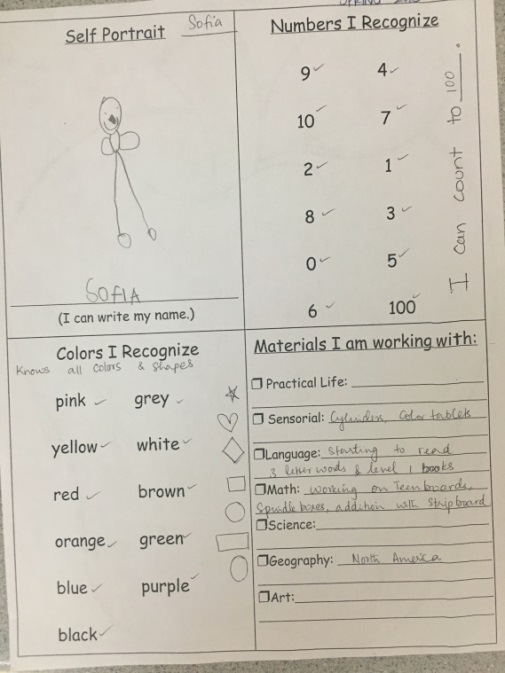 Self Portrait Sofia
SOfIA
(I can write my name.)
Numbers I Recognize
9 ✓ 4 ✓
10 ✓ 7 ✓
2 ✓ 1 ✓
8 ✓ 3 ✓
0 ✓ 5 ✓
6 ✓ 100 ✓
I can count to 100.
Colors I Recognize
Knows all colors & shapes
pink ✓ grey ✓
yellow ✓ white ✓
red ✓ brown ✓
orange ✓ green ✓
blue ✓ purple ✓
black ✓
Materials I am working with:
Practical Life:
Sensorial: Cylinders, Color tablets
Language: Starting to read
3 letter words & level 1 books
Math: working on Teen boards,
Spindle boxes, addition with Strip board
Science:
Geography: North America
Art: